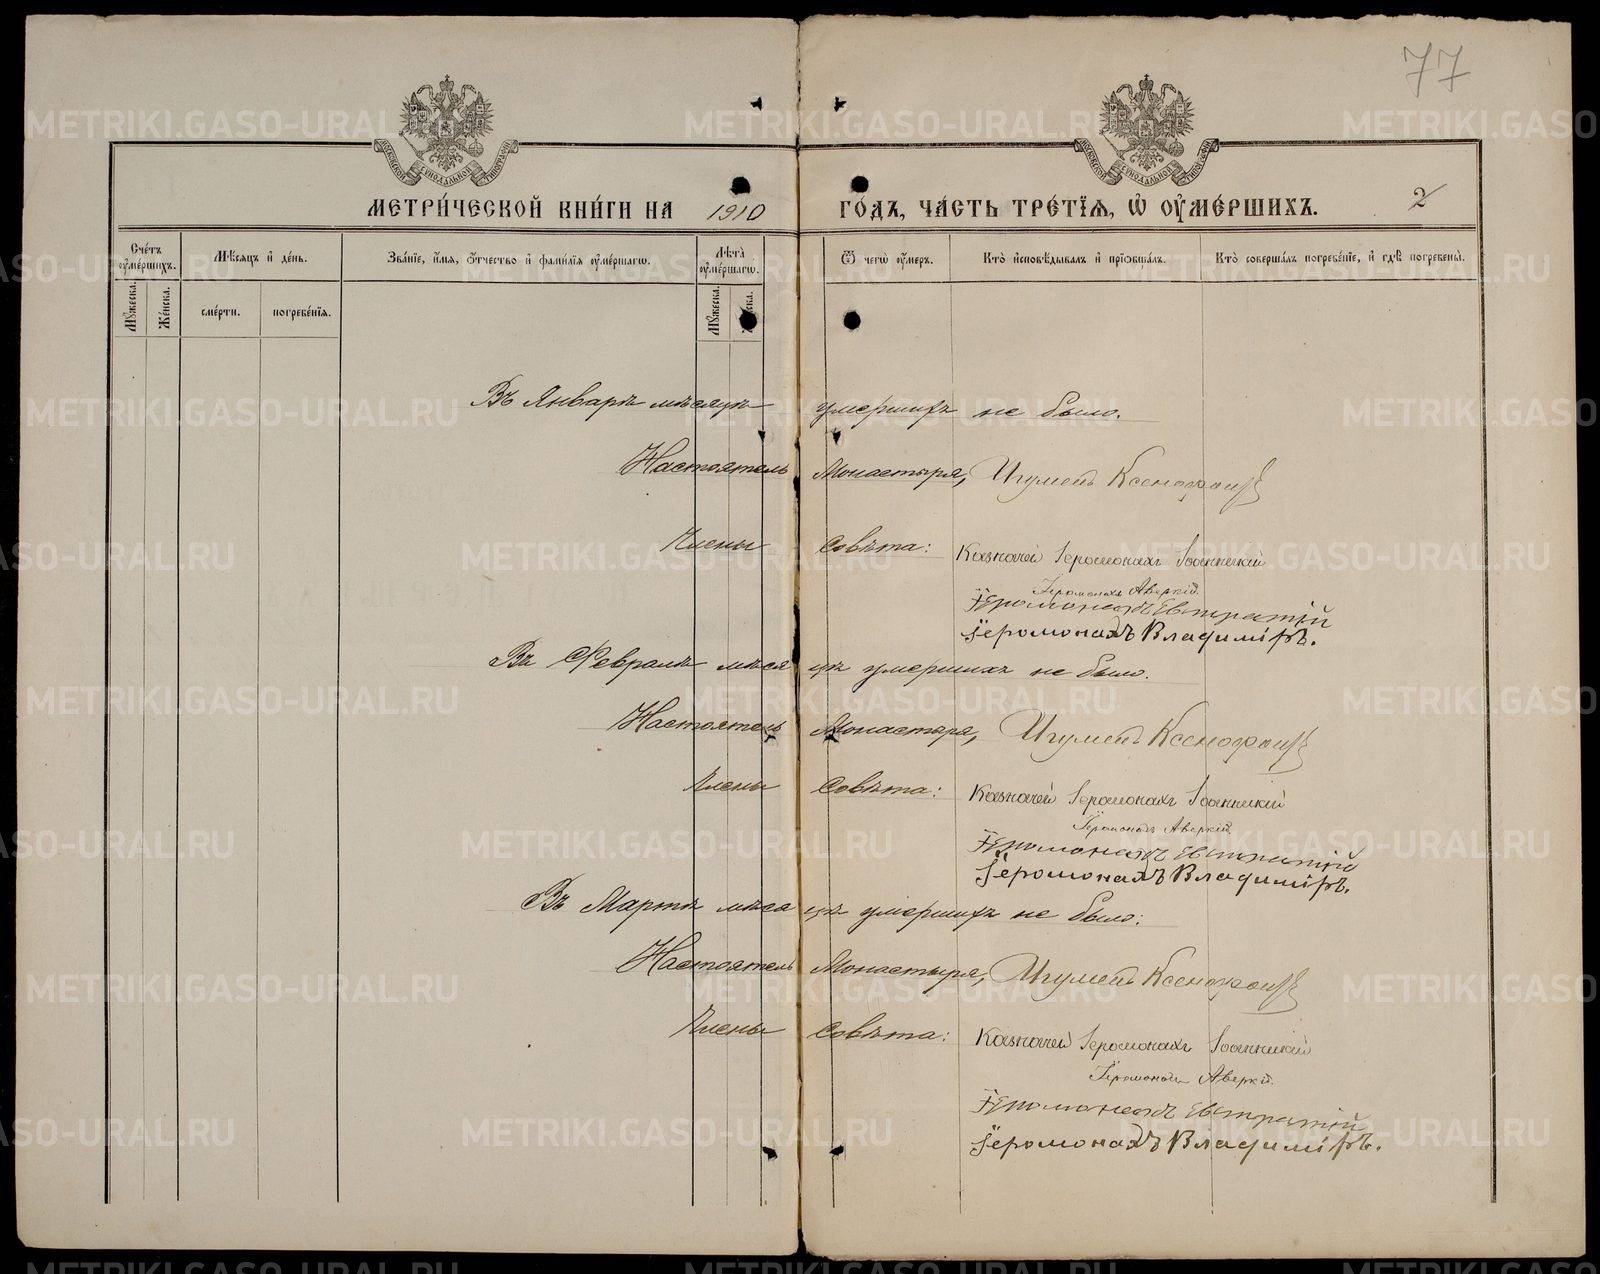 77
МОСКОВСКОЙ СѴНОДАЛЬНОЙ ТИПОГРАФІИ
МОСКОВСКОЙ СѴНОДАЛЬНОЙ ТИПОГРАФІИ
МЕТРИ́ЧЕСКОЙ КНИ́ГИ НА 1910 ГО́ДЪ, ЧА́СТЬ ТРЕ́ТІѦ, Ѡ҆ ОУ҆МЕ́РШИХЪ. 2
Сче́тъ оу҆ме́ршихъ. Мѣ́сѧцъ и҆ де́нь. Зва́нїе, и҆́мѧ, ѻ҆́тчество и҆ фами́лїѧ оу҆ме́ршагѡ. Лѣ́та оу҆ме́ршагѡ. Ѿ чегѡ̀ оу҆́меръ. Кто̀ и҆сповѣ́дывалъ и҆ прїѡбща́лъ. Кто̀ соверша́лъ погребе́нїе, и҆ гдѣ̀ погребены̀.
Мꙋ́жеска. Же́нска. сме́рти. погребе́нїѧ. Мꙋ́жеска. Же́нска.
Въ Январѣ мѣсяцѣ умершихъ не было.
Настоятель Монастыря, Игуменъ Ксенофонтъ
Члены Совѣта: Казначей Іеромонахъ Іоанникій
Іеромонахъ Аверкій
Іеромонахъ Евстратій
Іеромонахъ Владиміръ.
Въ Февралѣ мѣсяцѣ умершихъ не было.
Настоятель Монастыря, Игуменъ Ксенофонтъ
Члены Совѣта: Казначей Іеромонахъ Іоанникій
Іеромонахъ Аверкій
Іеромонахъ Евстратій
Іеромонахъ Владиміръ.
Въ Мартѣ мѣсяцѣ умершихъ не было:
Настоятель Монастыря, Игуменъ Ксенофонтъ
Члены Совѣта: Казначей Іеромонахъ Іоанникій
Іеромонахъ Аверкій.
Іеромонахъ Евстратій
Іеромонахъ Владиміръ.
METRIKI.GASO-URAL.RU